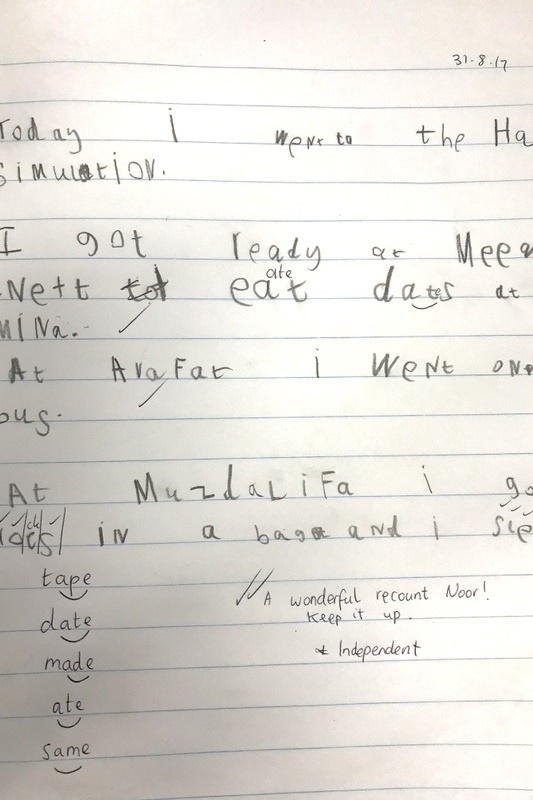 31.8.17
Today i went to the Ha
simulation.
I got ready at Meeq
Nett eat dates at
ate
MiNa.
At AraFat i weNt one
bus.
At MuzdaLiFa i go
in a bag and i sle
tape
date
made
ate
same
A wonderful recount Noor!
Keep it up.
* Independent